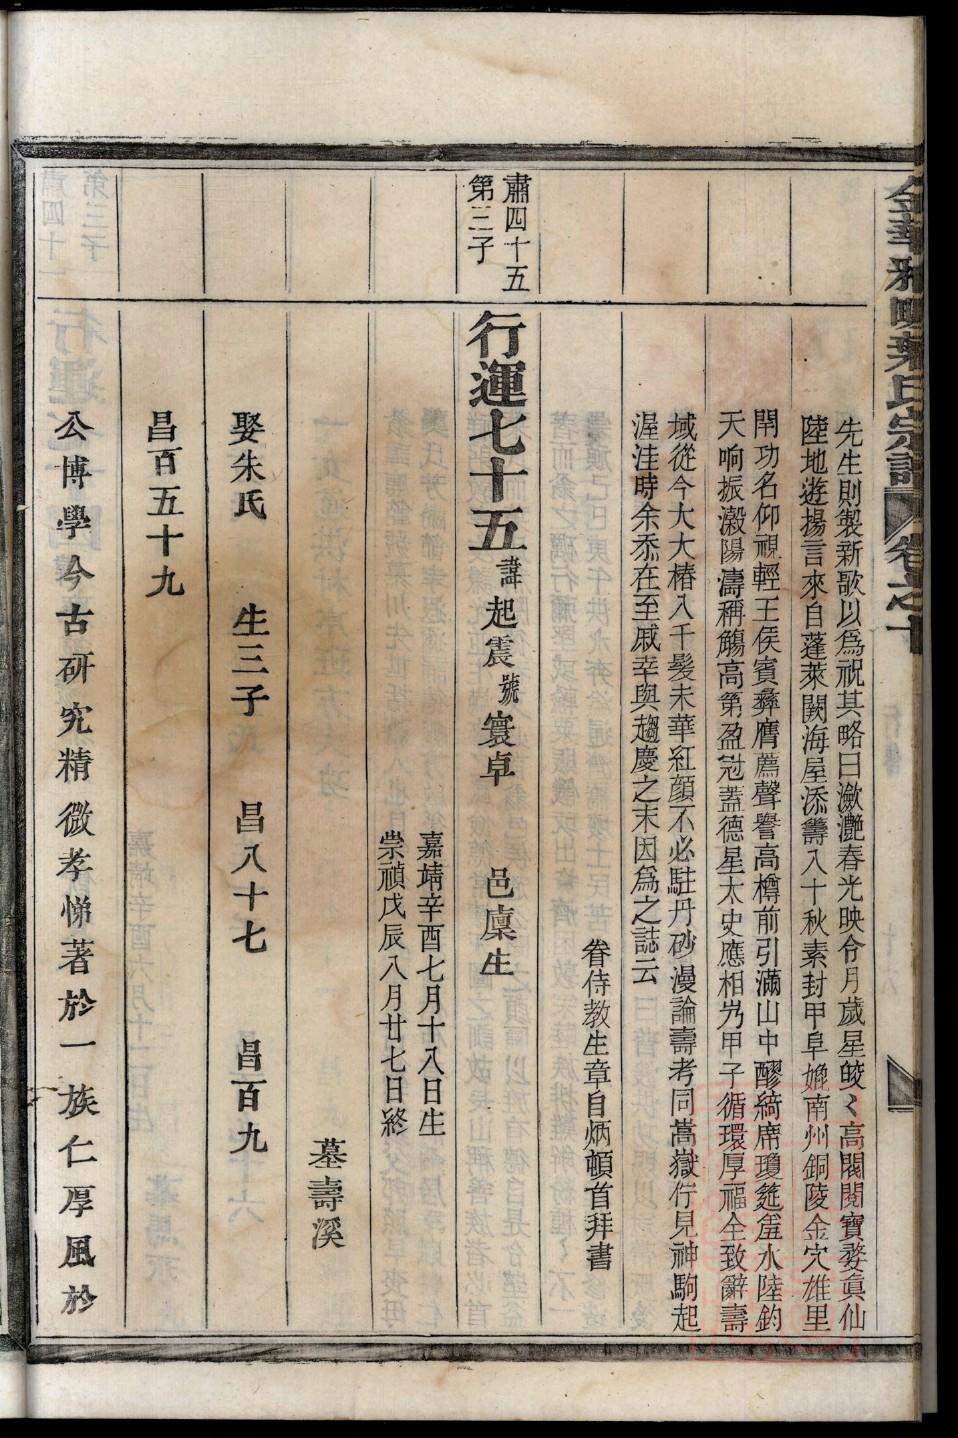 金華雅畈葉氏宗譜 卷之十
先生則製新歌以爲祝其略曰瀲灔春光映令月歲星皎〻高閣閱寶婺眞仙
陸地遊揚言來自蓬萊闕海屋添籌入十秋素封甲阜嬔南州銅陵金穴雄里
閈功名仰視輕王侯賓彝膺薦聲譽高樽前引滿山中醪綺席瓊筵羞水陸釣
天响振瀫陽濤稱觴高第盈冠蓋德星太史應相屴甲子循環厚福全致辭壽
域從今大大椿八千髮未華紅顏不必駐丹砂漫論壽考同嵩嶽佇見神駒起
渥洼時余忝在至戚幸與趨慶之末因爲之誌云
眷侍教生章自炳頓首拜書
肅四十五
第三子
行運七十五 諱起震號寰卓 邑廩生
嘉靖辛酉七月十八日生
崇禎戊辰八月廿七日終
墓壽溪
娶朱氏 生三子 昌八十七 昌百九
昌百五十九
公博學今古研究精微孝悌著於一族仁厚風於